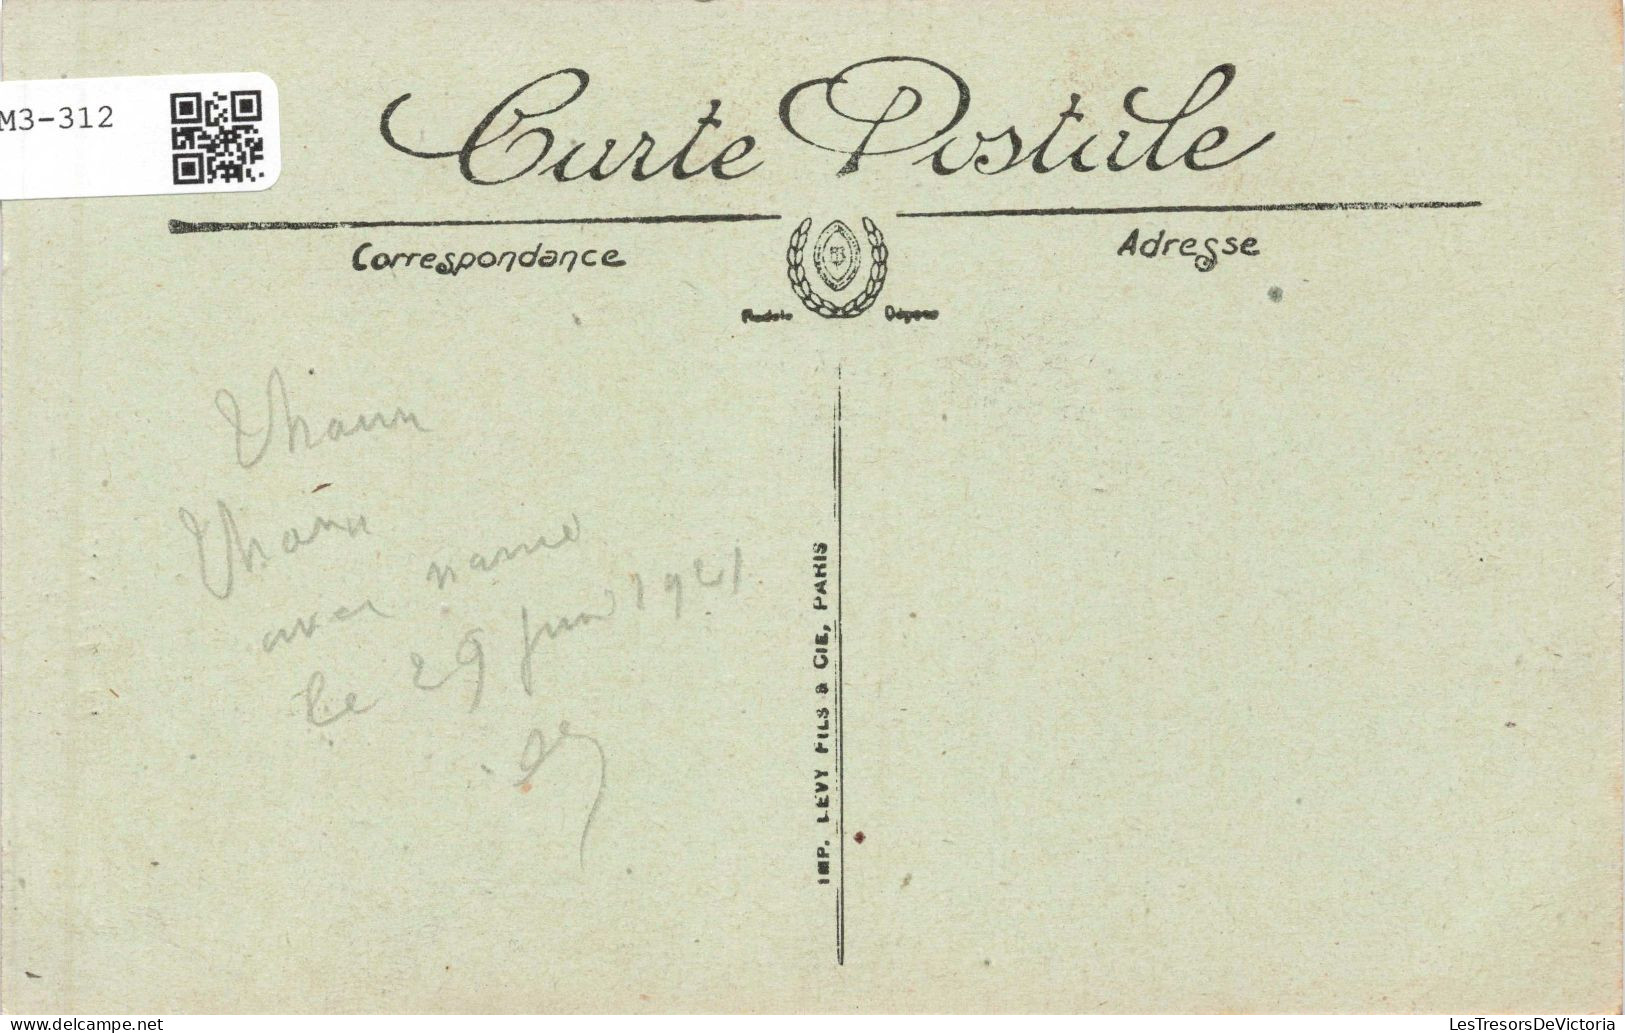 M3-312
Carte Postale
Correspondance
Adresse
Modèle Déposé
Thann
Thann
avec
le 29 juin 1921
IMP. LEVY FILS & CIE, PARIS
LesTresorsDeVictoria